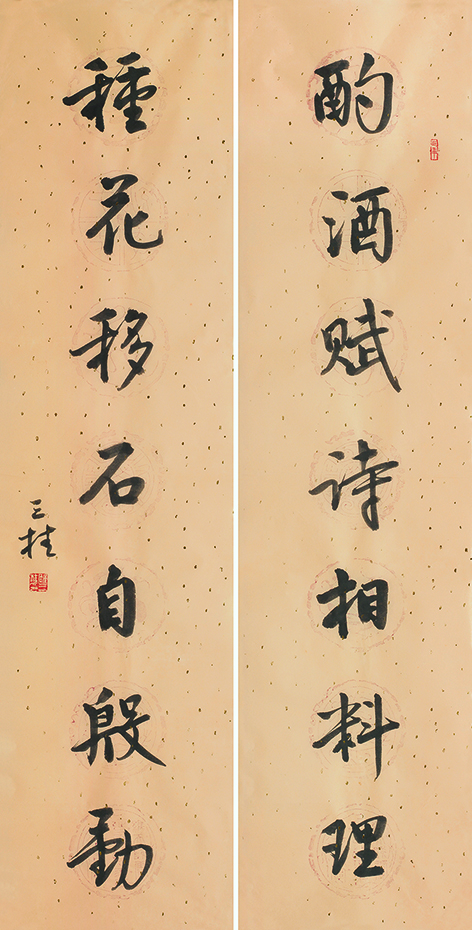 酌酒赋诗相料理
種花移石自殷勤
三桂